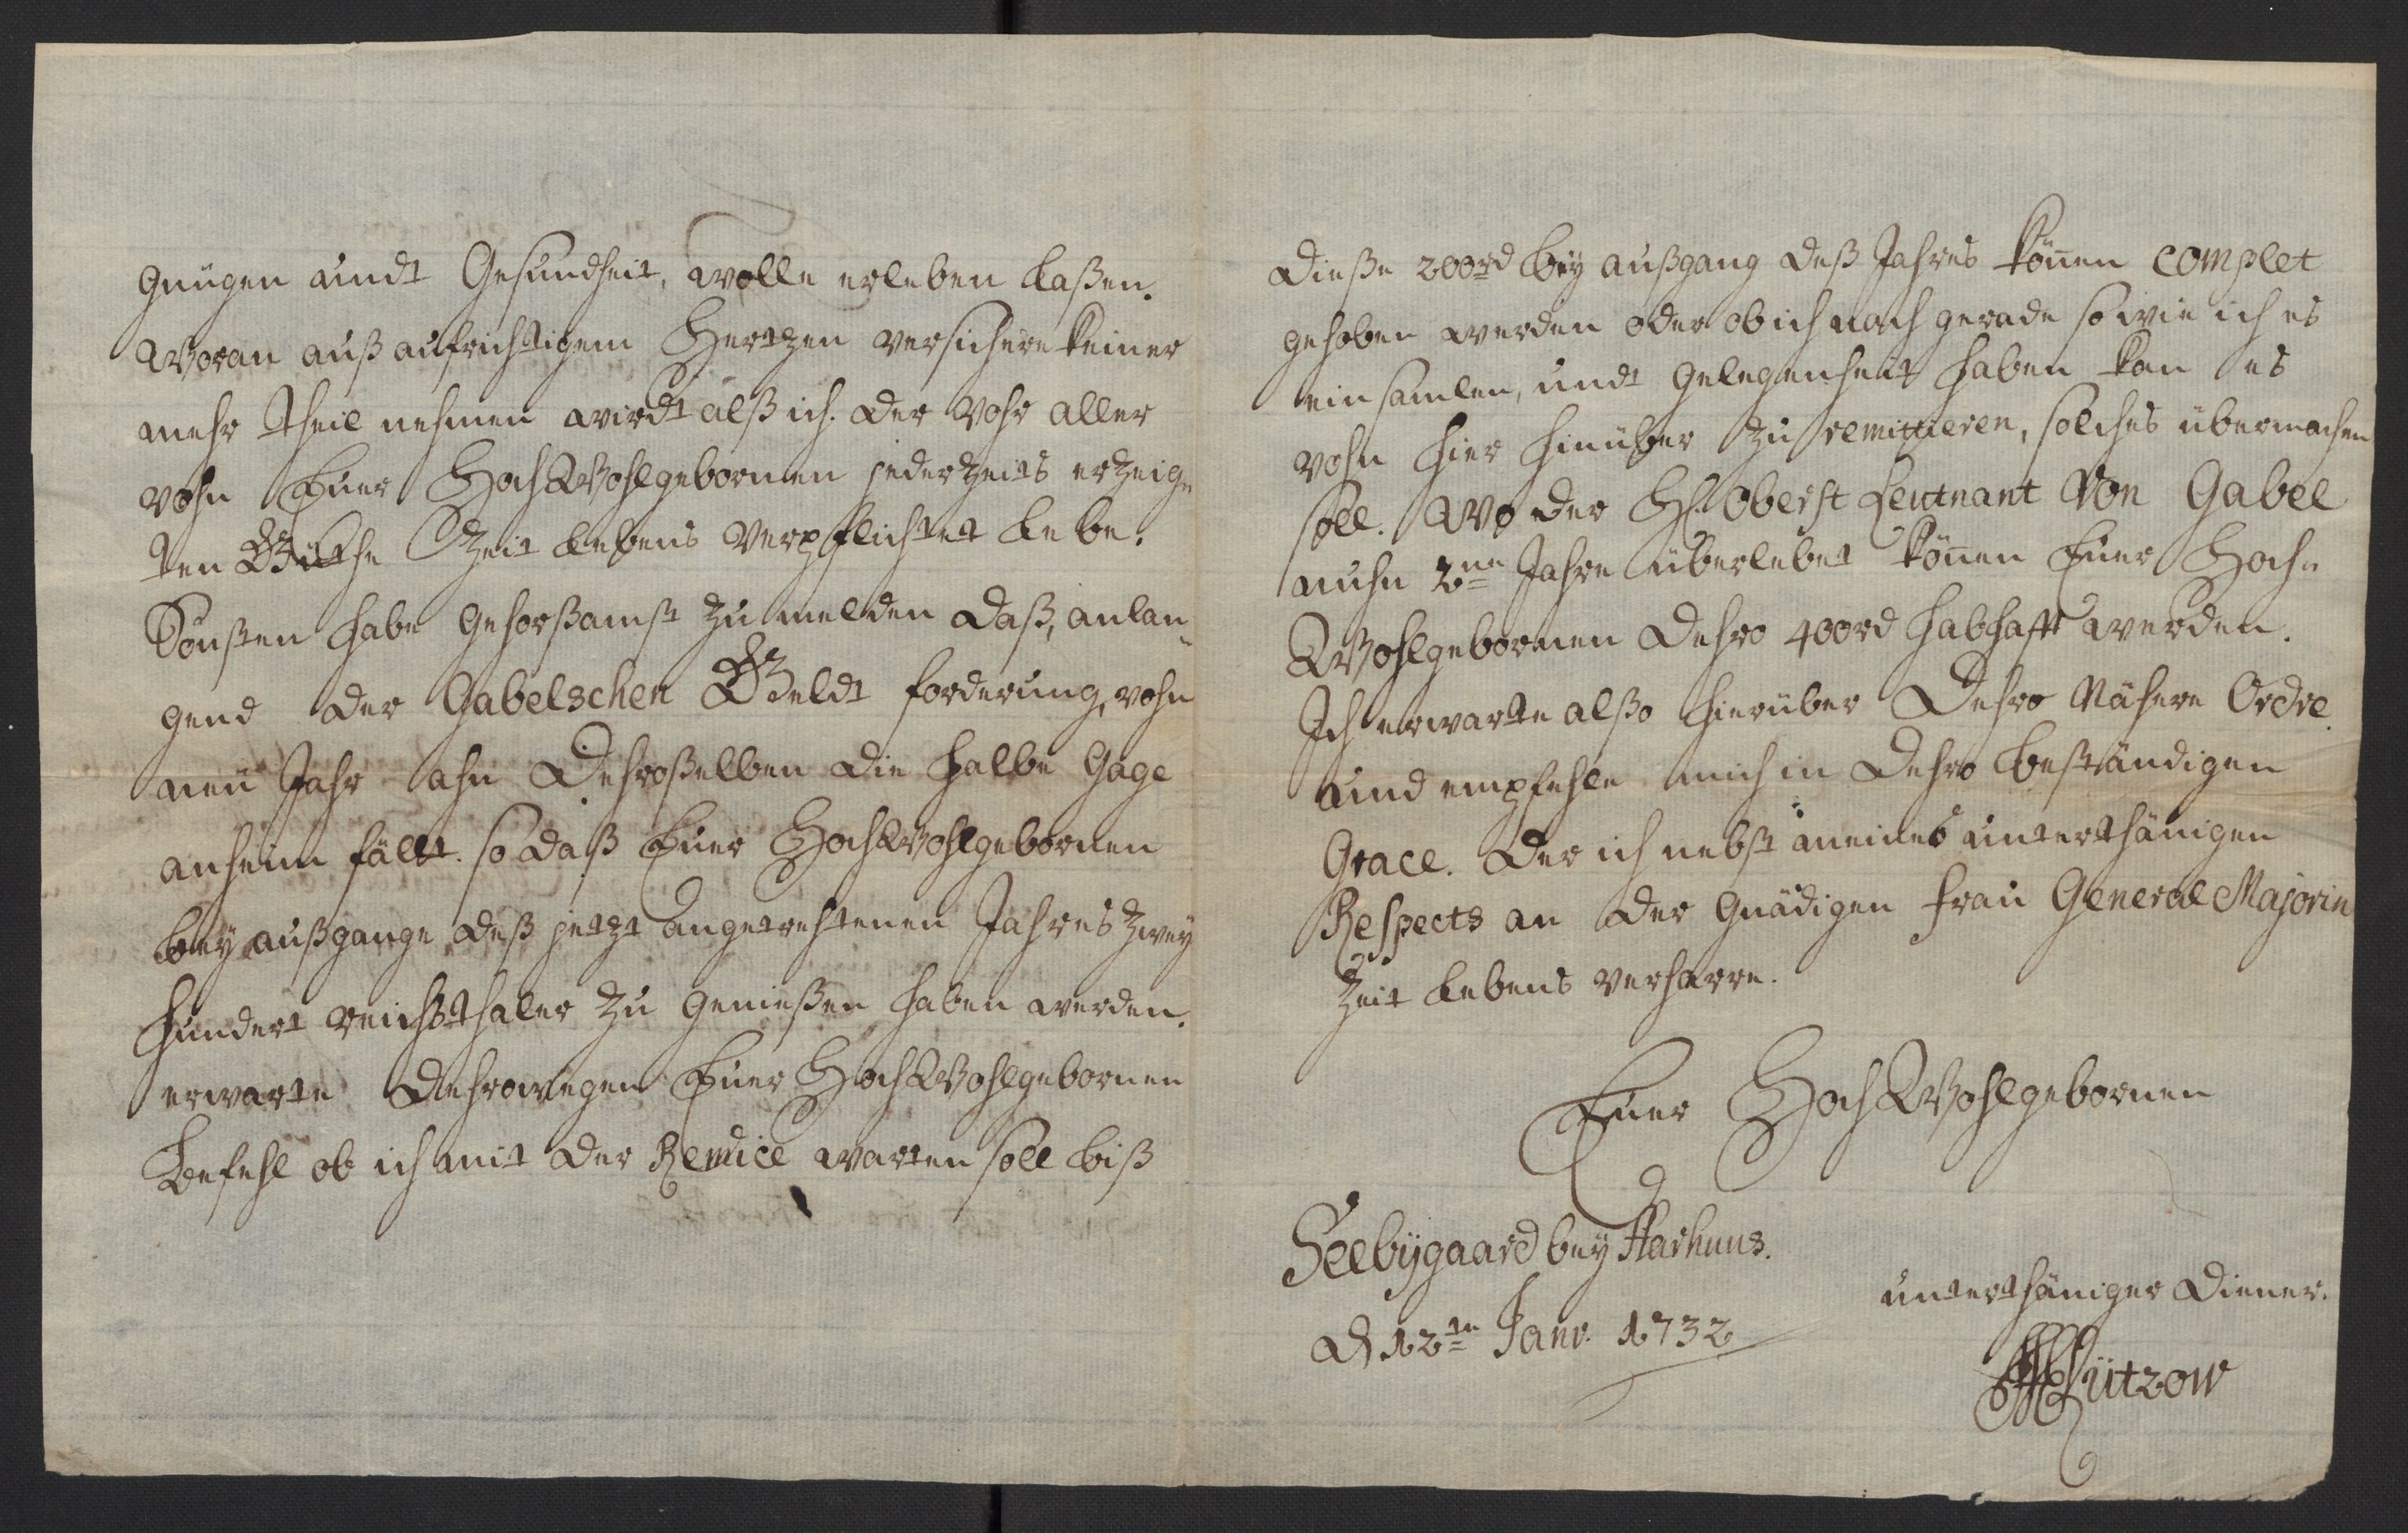 gnügen undt Gesundheit, wolle erleben laßen.
Woran auß aufrichtigem Hertzen versichere keiner
mehr theil nehmen wirdt alß ich. der vohr aller
vohn Euer HochWohlgebornen jederzeits erzeig„
ten Güthe Zeit lebens verpflichtet lebe.
Sonßten habe gehorßamst zu melden daß, anlan„
gend der Gabelschen Geldt forderung, vohn
neü Jahr ahn Dehroßelben die halbe Gage
anheim fällt. so daß Euer HochWohlgebornen
bey außgange deß jetzt angetrehtenen Jahres zwey
hundert reichsthaler zu genießen haben werden.
erwarte dehrowegen Euer HochWohlgebornen
Befehl ob ich mit der Remice warten soll biß
dieße 200rd bey außgang deß Jahres können complet
gehoben werden oder ob ich nach gerade so wie ich es
einsamlen, undt gelegenheit haben kan es
vohn hier hinüber zu remittieren, solches übermachen
soll. Wo der H. Oberst Leutnant Von Gabel
nuhn 2ne Jahre überlebet können Euer Hoch„
Wohlgebornen dehro 400rd habhafft werden.
Ich erwarte alßo hierüber Dehro Nähere Ordre.
und empfehle mich in Dehro beständigen
Grace. Der ich nebst meines unterthänigen
Respects an der Gnädigen frau General Majorin
Zeit lebens verharre.
Euer HochWohlgebornen
Seelbygaard bey Aarhuus.
d 12te Janv. 1732
unterthäniger Diener.
Lützow